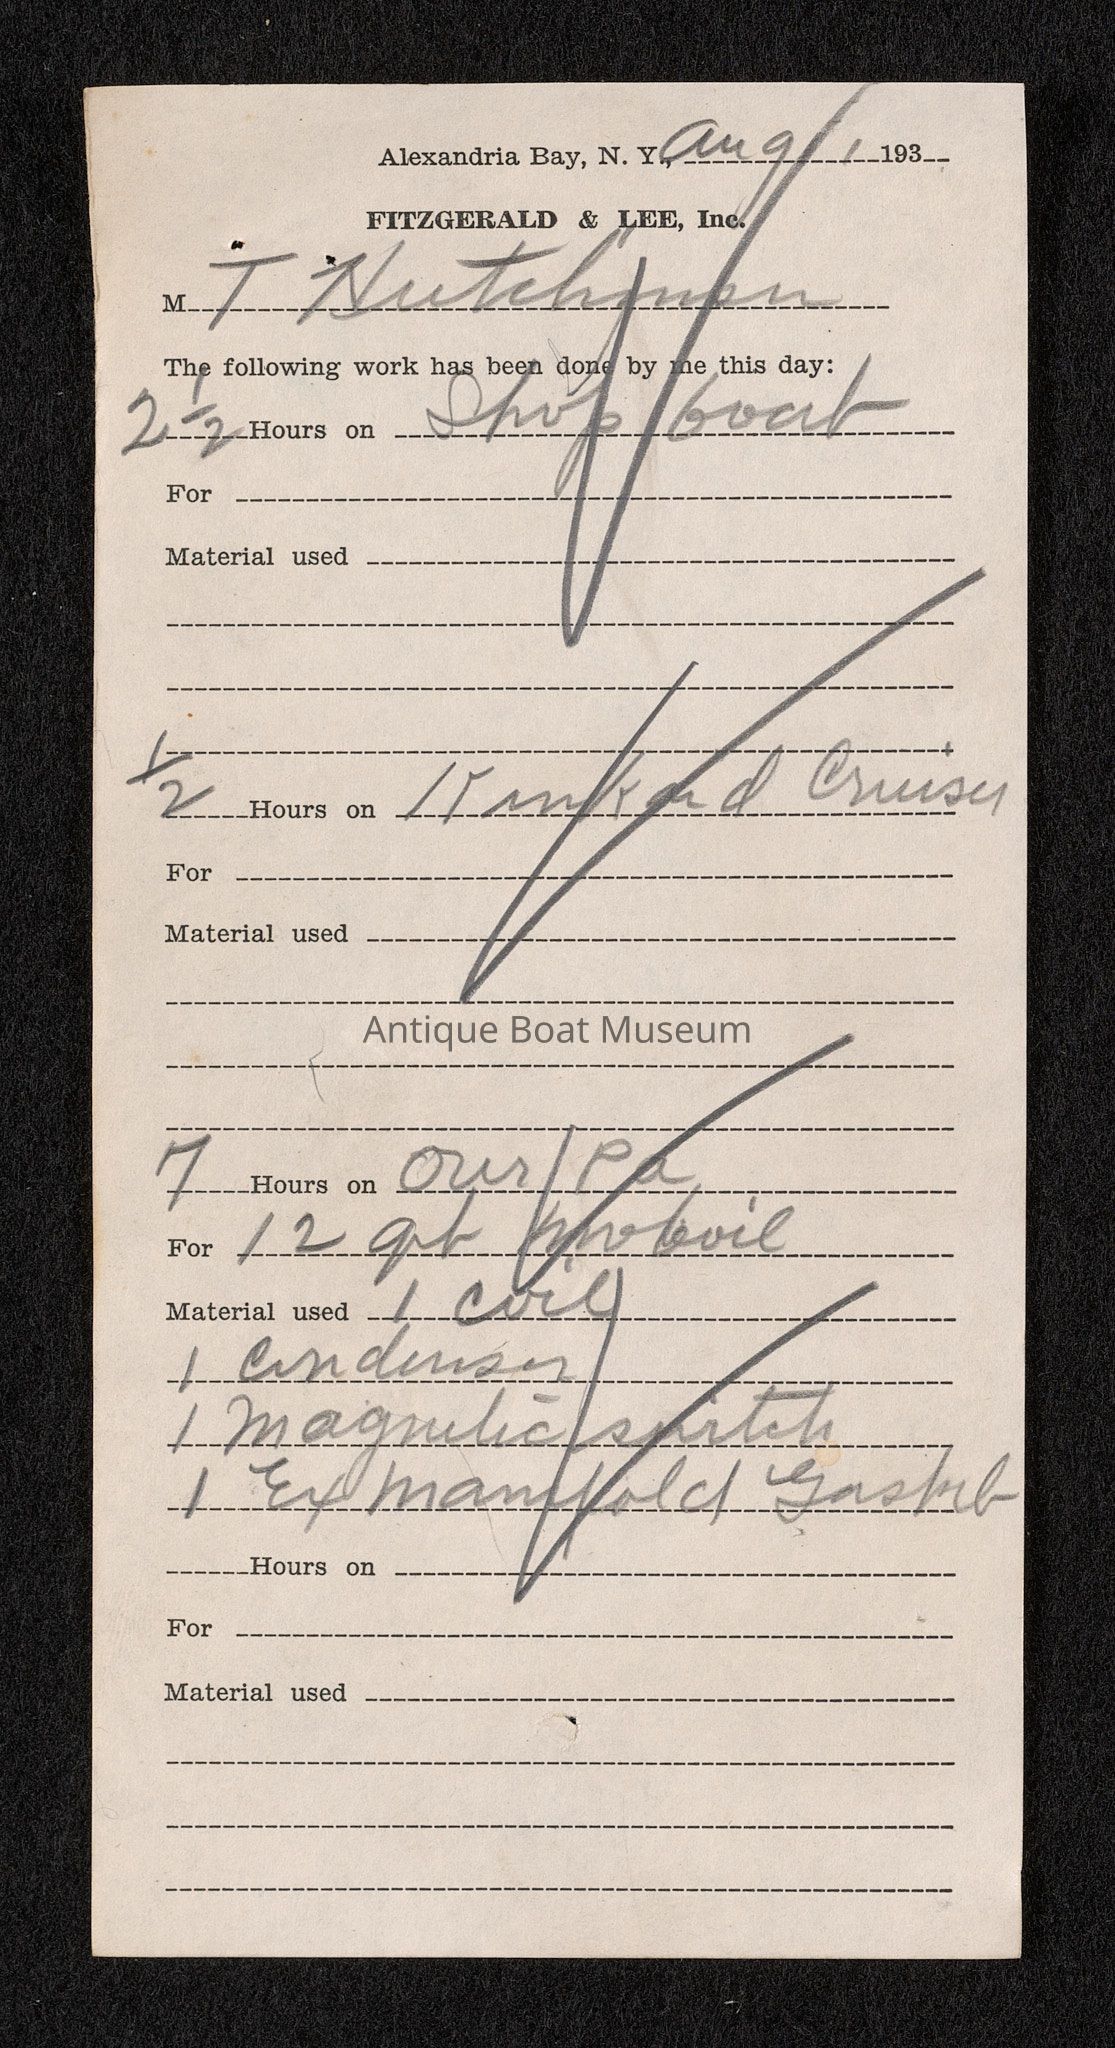 Alexandria Bay, N. Y., Aug 1, 193
FITZGERALD & LEE, Inc.
M T Hutchinson
The following work has been done by me this day:
2 1/2 Hours on Shop boat
For
Material used
1/2 Hours on Kinkard Cruiser
For
Material used
Antique Boat Museum
7 Hours on Our Pa
For 12 qt moboil
Material used 1 coil
1 Condenser
1 Magnetic switch
1 Ex Manifold Gasket
Hours on
For
Material used